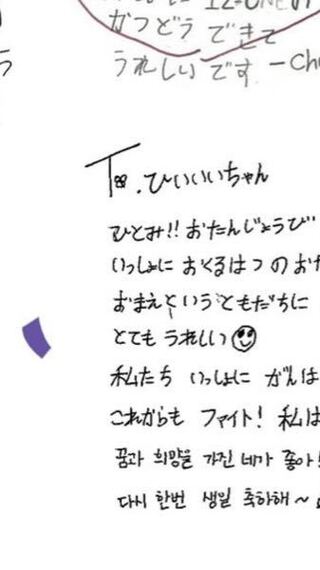 IZ*ONEの
かつどう できて
うれしいです -Ch
う
To. ひいいいちゃん
ひとみ!! おたんじょうび
いっしょに おくるはつのおた
おまえというともだちに
とても うれしい
私たち いっしょに がんば
これからも ファイト! 私は
꿈과 희망을 가진 네가 좋아!
다시 한번 생일 축하해~